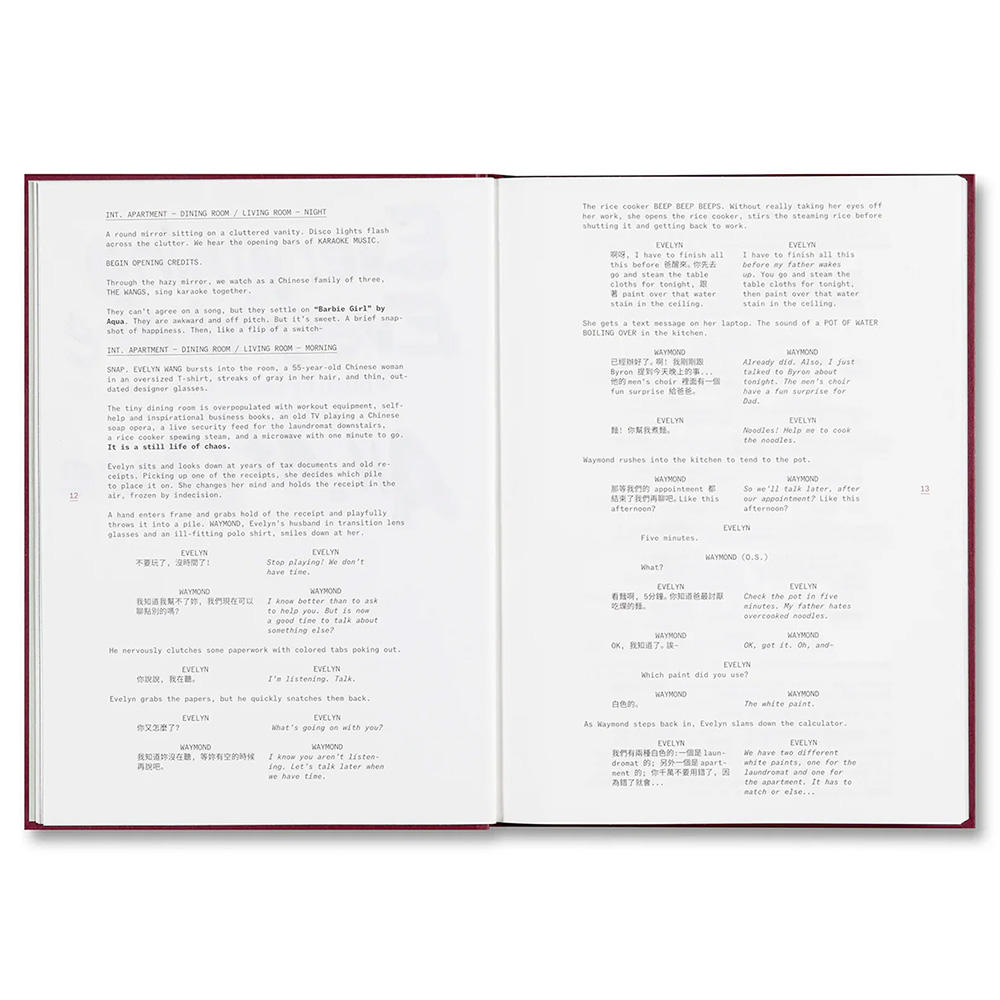 INT. APARTMENT – DINING ROOM / LIVING ROOM – NIGHT
A round mirror sitting on a cluttered vanity. Disco lights flash
across the clutter. We hear the opening bars of KARAOKE MUSIC.
BEGIN OPENING CREDITS.
Through the hazy mirror, we watch as a Chinese family of three,
THE WANGS, sing karaoke together.
They can't agree on a song, but they settle on “Barbie Girl” by
Aqua. They are awkward and off pitch. But it's sweet. A brief snap-
shot of happiness. Then, like a flip of a switch–
INT. APARTMENT – DINING ROOM / LIVING ROOM – MORNING
SNAP. EVELYN WANG bursts into the room, a 55-year-old Chinese woman
in an oversized T-shirt, streaks of gray in her hair, and thin, out-
dated designer glasses.
The tiny dining room is overpopulated with workout equipment, self-
help and inspirational business books, an old TV playing a Chinese
soap opera, a live security feed for the laundromat downstairs,
a rice cooker spewing steam, and a microwave with one minute to go.
It is a still life of chaos.
Evelyn sits and looks down at years of tax documents and old re-
ceipts. Picking up one of the receipts, she decides which pile
to place it on. She changes her mind and holds the receipt in the
air, frozen by indecision.
12
A hand enters frame and grabs hold of the receipt and playfully
throws it into a pile. WAYMOND, Evelyn's husband in transition lens
glasses and an ill-fitting polo shirt, smiles down at her.
EVELYN
不要玩了, 沒時間了!
EVELYN
Stop playing! We don't
have time.
WAYMOND
我知道我幫不了妳, 我們現在可以
聊點別的嗎?
WAYMOND
I know better than to ask
to help you. But is now
a good time to talk about
something else?
He nervously clutches some paperwork with colored tabs poking out.
EVELYN
你說說, 我在聽。
EVELYN
I'm listening. Talk.
Evelyn grabs the papers, but he quickly snatches them back.
EVELYN
你又怎麼了?
EVELYN
What's going on with you?
WAYMOND
我知道妳沒在聽, 等妳有空的時候
再說吧。
WAYMOND
I know you aren't listen-
ing. Let's talk later when
we have time.
The rice cooker BEEP BEEP BEEPS. Without really taking her eyes off
her work, she opens the rice cooker, stirs the steaming rice before
shutting it and getting back to work.
EVELYN
啊呀, I have to finish all
this before 爸醒來。你先去
go and steam the table
cloths for tonight, 跟
著 paint over that water
stain in the ceiling.
EVELYN
I have to finish all this
before my father wakes
up. You go and steam the
table cloths for tonight,
then paint over that water
stain in the ceiling.
She gets a text message on her laptop. The sound of a POT OF WATER
BOILING OVER in the kitchen.
WAYMOND
已經辦好了。啊! 我剛剛跟
Byron 提到今天晚上的事...
他的 men's choir 裡面有一個
fun surprise 給爸爸。
WAYMOND
Already did. Also, I just
talked to Byron about
tonight. The men's choir
have a fun surprise for
Dad.
EVELYN
麵! 你幫我煮麵。
EVELYN
Noodles! Help me to cook
the noodles.
Waymond rushes into the kitchen to tend to the pot.
WAYMOND
那等我們的 appointment 都
結束了我們再聊吧。Like this
afternoon?
WAYMOND
So we'll talk later, after
our appointment? Like this
afternoon?
13
EVELYN
Five minutes.
WAYMOND (O.S.)
What?
EVELYN
看麵啊, 5分鐘。你知道爸最討厭
吃爛的麵。
EVELYN
Check the pot in five
minutes. My father hates
overcooked noodles.
WAYMOND
OK, 我知道了。誒–
WAYMOND
OK, got it. Oh, and–
EVELYN
Which paint did you use?
WAYMOND
白色的。
WAYMOND
The white paint.
As Waymond steps back in, Evelyn slams down the calculator.
EVELYN
我們有兩種白色的:一個是 laun-
dromat 的; 另外一個是 apart-
ment 的; 你千萬不要用錯了, 因
為錯了就會...
EVELYN
We have two different
white paints, one for the
laundromat and one for
the apartment. It has to
match or else...